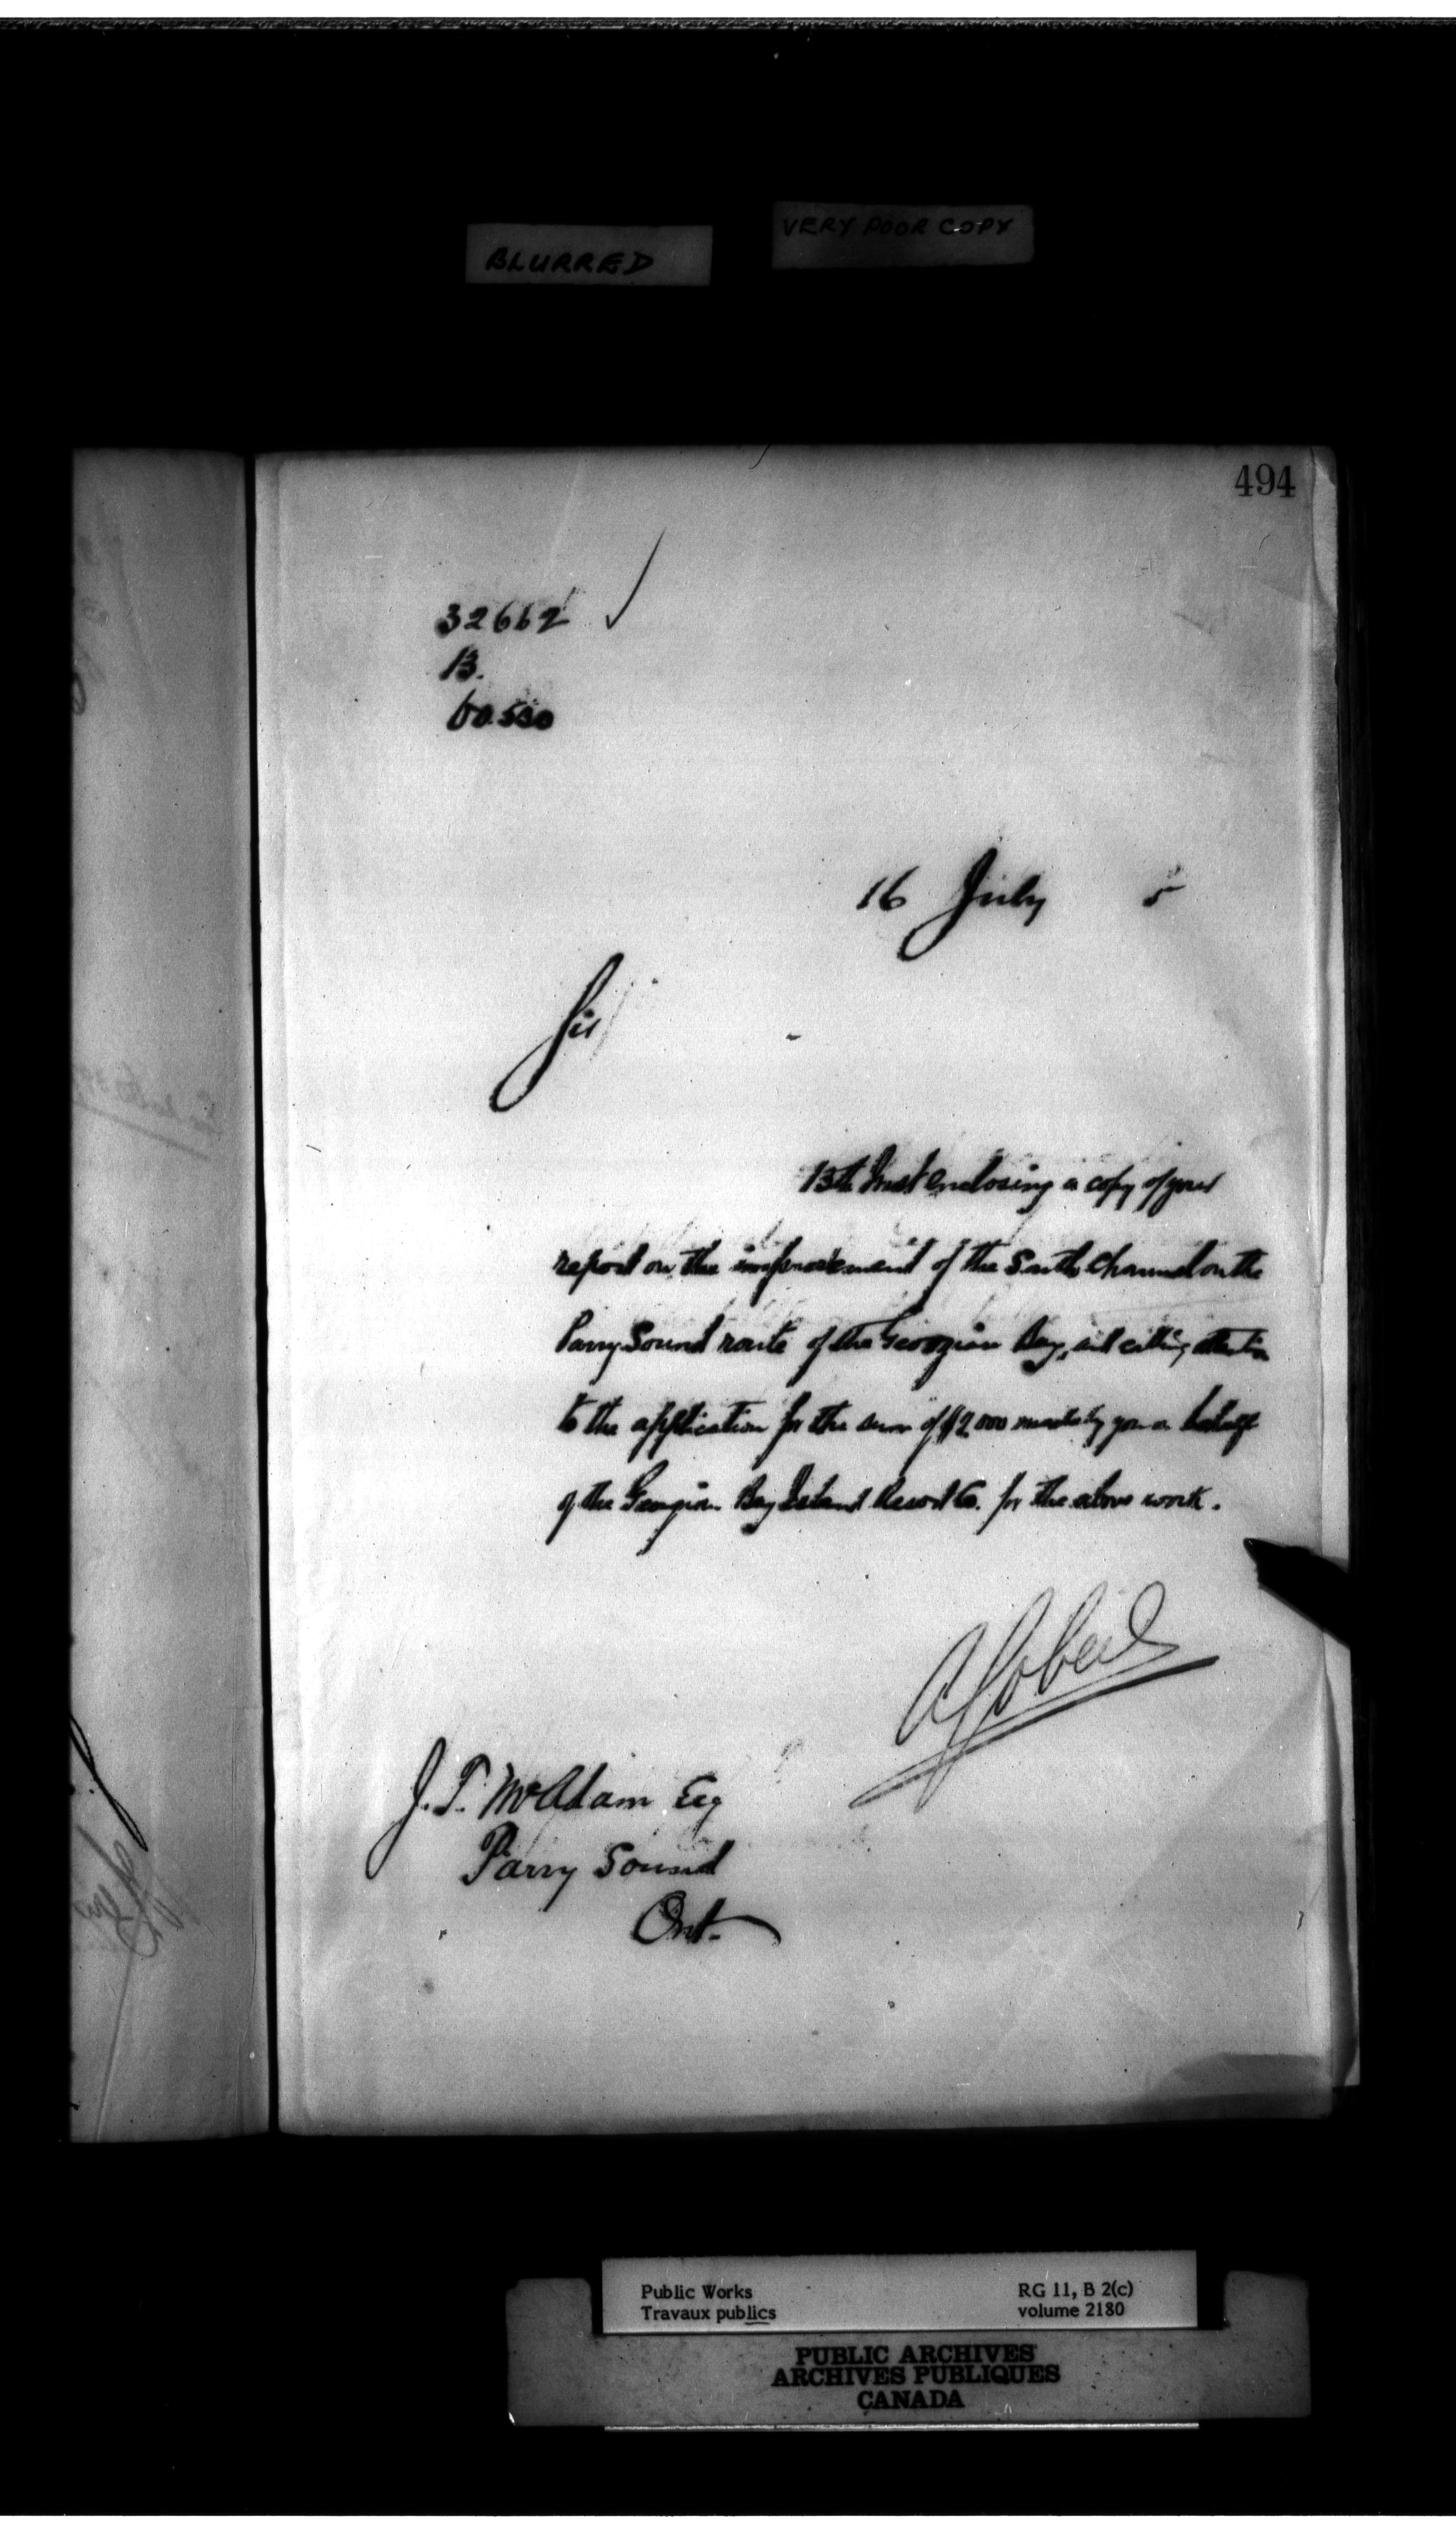 BLURRED
VERY POOR COPY
494
32662
B.
60.530
16 July 5
Sir
13th Inst enclosing a copy of your
report on the improvement of the South Channel on the
Parry Sound route of the Georgian Bay, and calling attention
to the application for the sum of $2,000 made by you on behalf
of the Georgian Bay Island Resort Co. for the above work.
AGobeil
J. T. McAdam Esq
Parry Sound
Ont.
Public Works
Travaux publics
RG 11, B 2(c)
volume 2180
PUBLIC ARCHIVES
ARCHIVES PUBLIQUES
CANADA